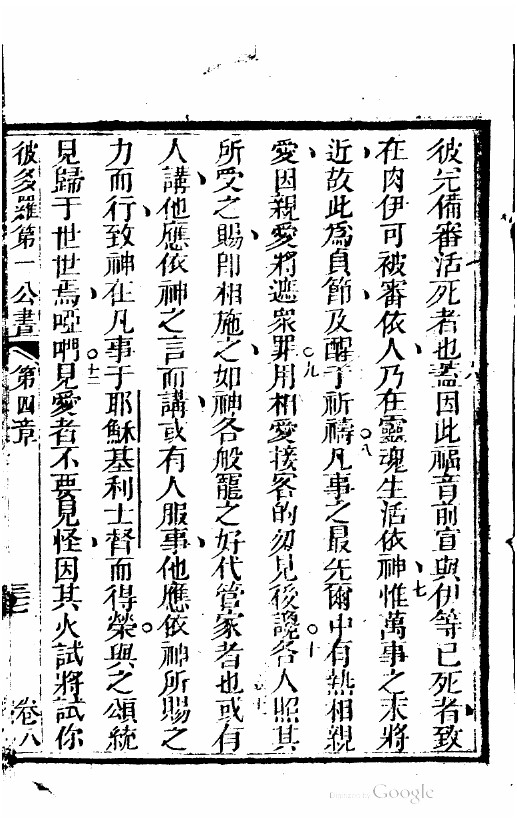 彼先備審活死者也蓋因此福音前宣與伊等已死者致
六
在肉伊可被審依人乃在靈魂生活依神惟萬事之末將
七
近故此為貞節及醒于祈禱凡事之最先爾中有熱相親
八
愛因親愛將遮眾罪用相愛接客的勿見後讒各人照其
九 十
所受之賜即相施之如神各般寵之好代管家者也或有
十一
人講他應依神之言而講或有人服事他應依神所賜之
力而行致神在凡事于耶穌基利士督而得榮與之頌統
見歸于世世焉啞們見愛者不要見怪因其火試將試你
十二
彼多羅第一公書 第四章 三七 卷八
Digitized by Google